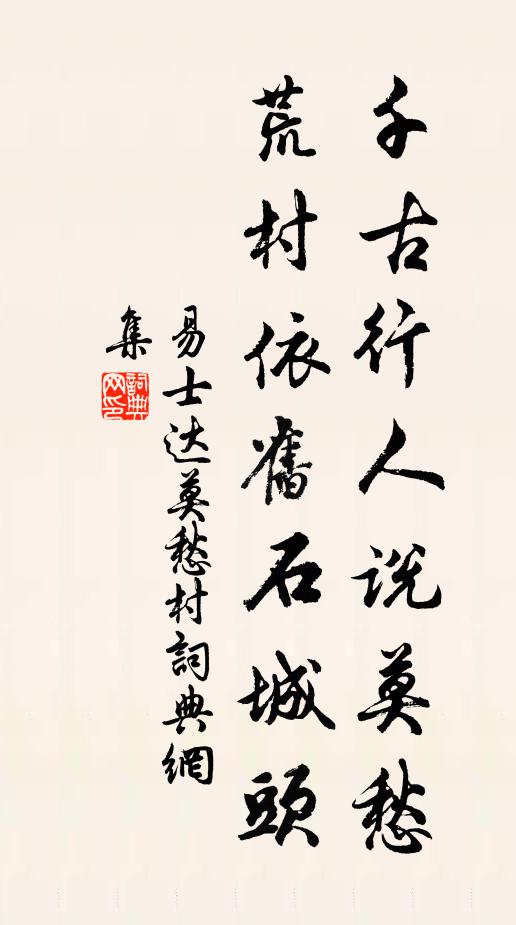 千古行人说莫愁
荒村依舊石城頭
易士达莫愁村詞典網
集
詞典
网印